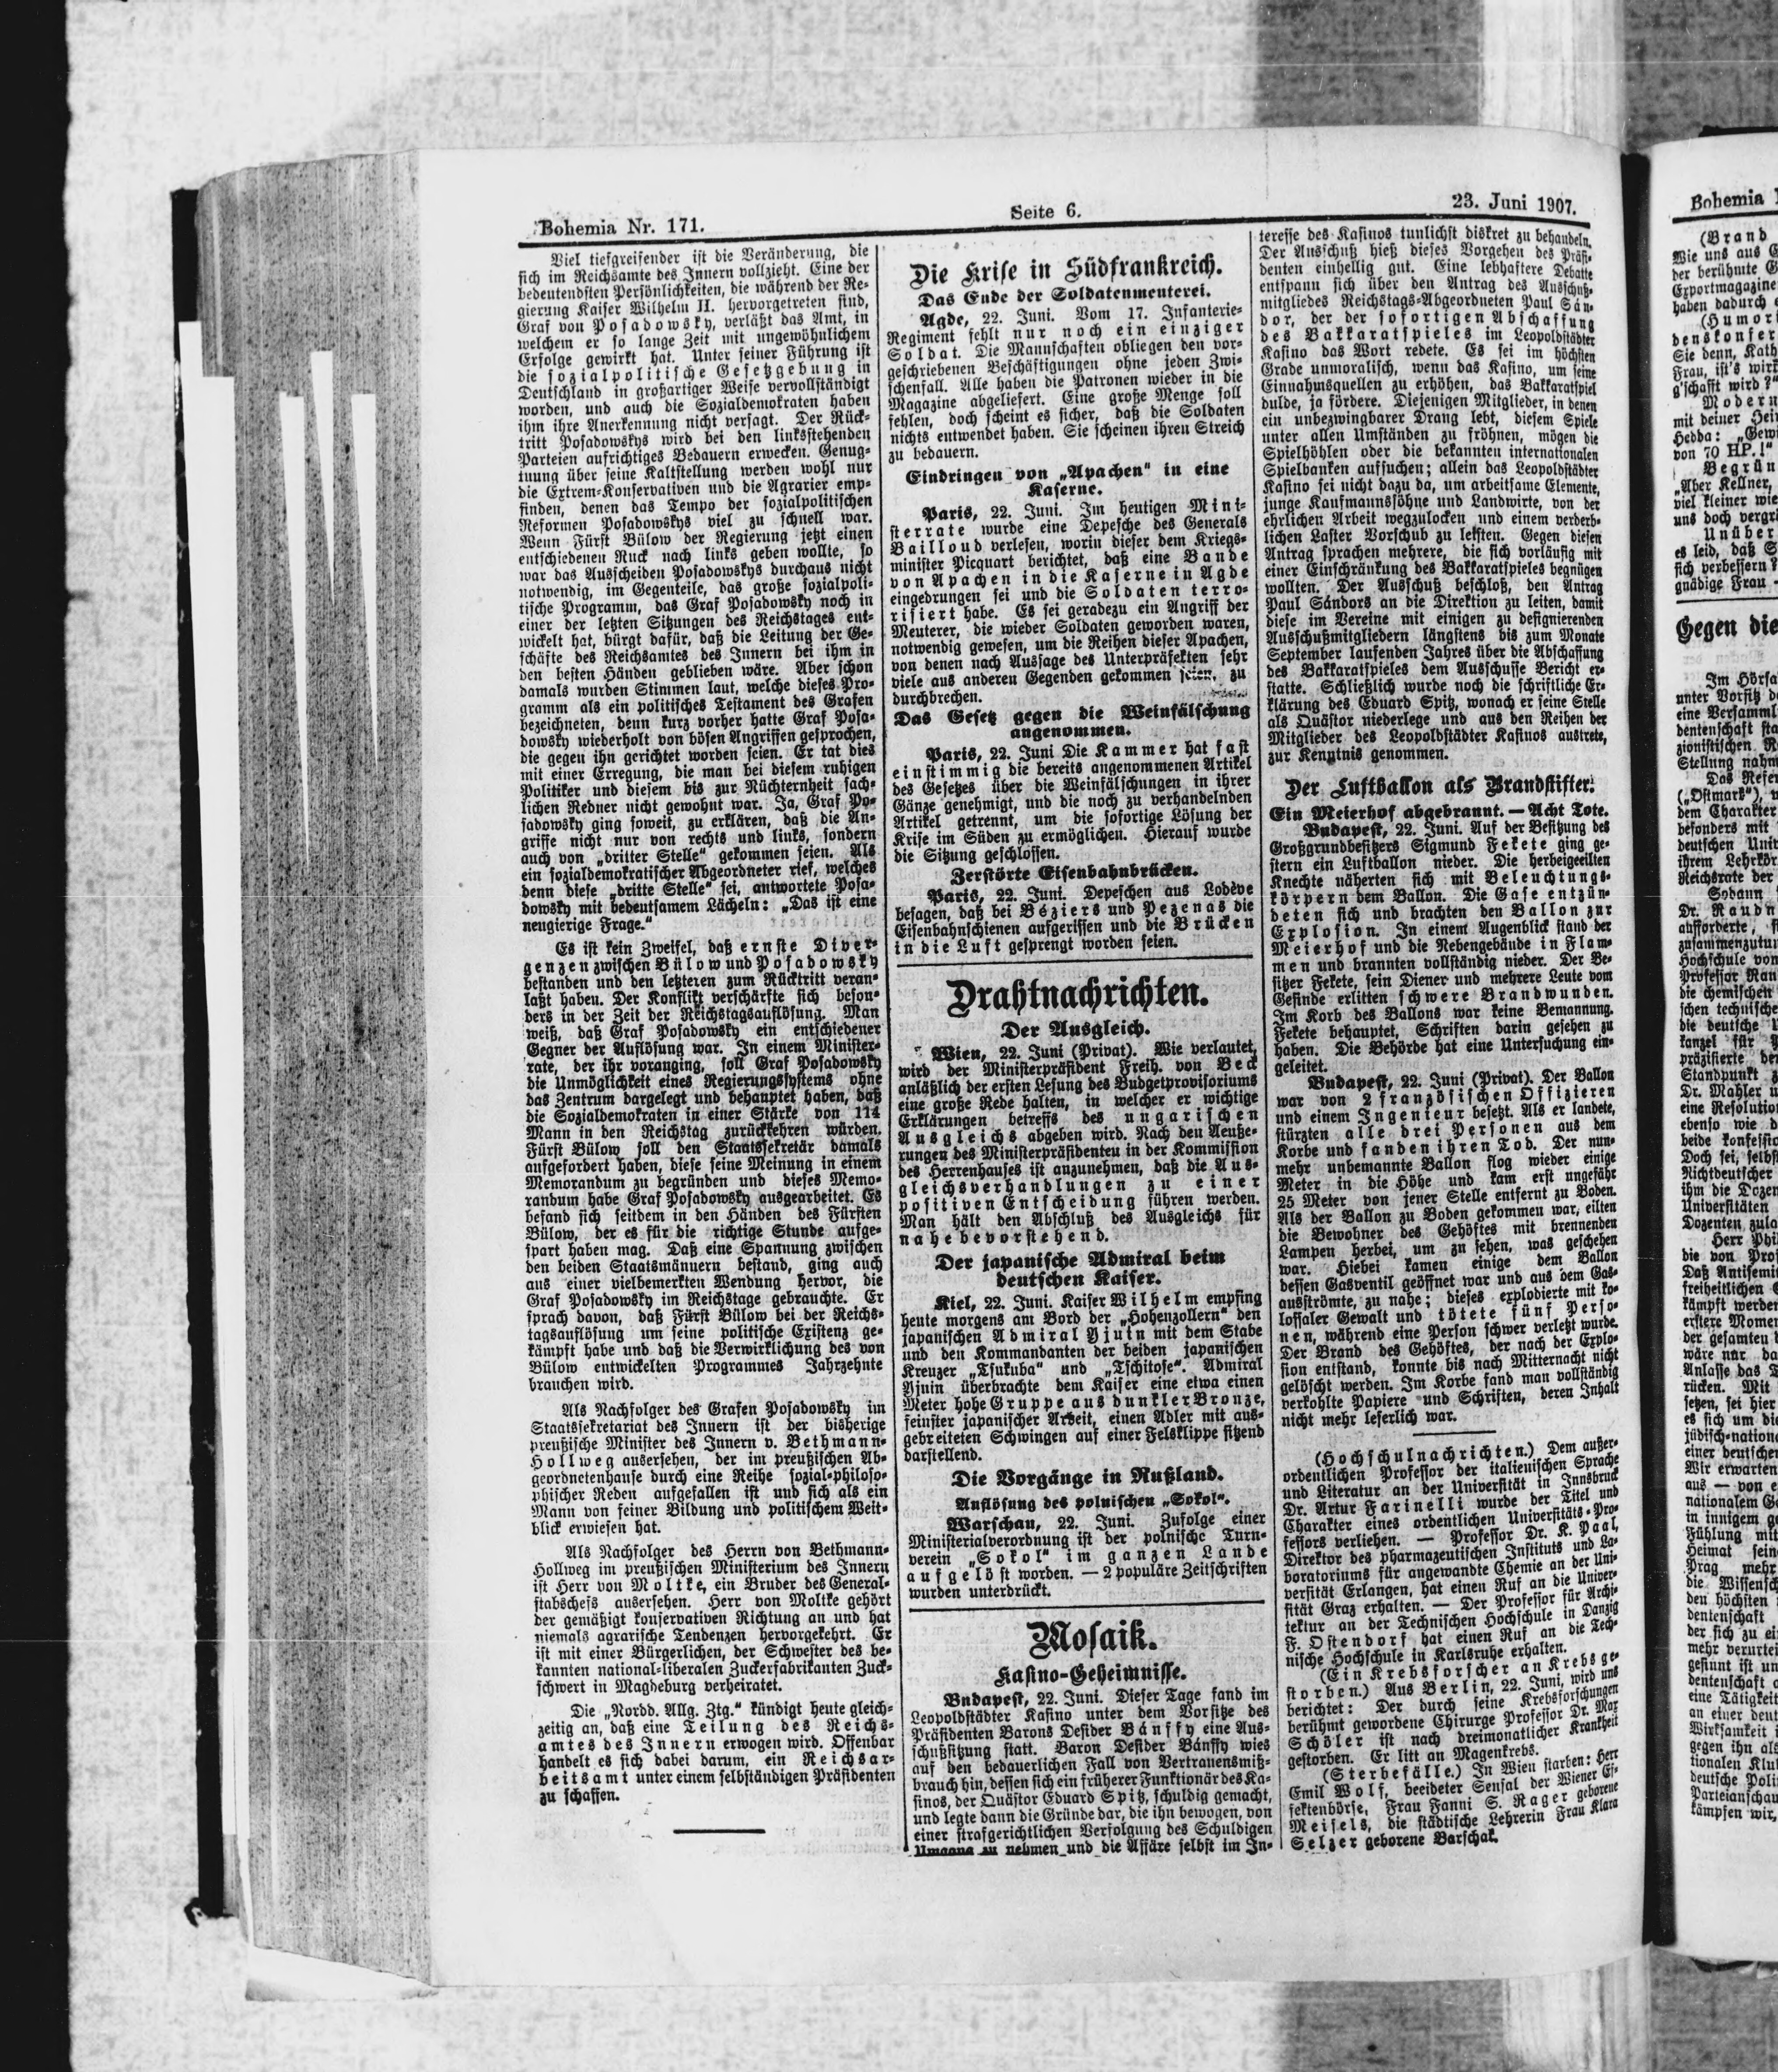 Bohemia Nr. 171.
Seite 6.
23. Juni 1907.
Viel tiefgreifender ist die Veränderung, die
sich im Reichsamte des Innern vollzieht. Eine der
bedeutendsten Persönlichkeiten, die während der Re-
gierung Kaiser Wilhelm II. hervorgetreten sind,
Graf von Posadowsky, verläßt das Amt, in
welchem er so lange Zeit mit ungewöhnlichem
Erfolge gewirkt hat. Unter seiner Führung ist
die sozialpolitische Gesetzgebung in
Deutschland in großartiger Weise vervollständigt
worden, und auch die Sozialdemokraten haben
ihm ihre Anerkennung nicht versagt. Der Rück-
tritt Posadowskys wird bei den linksstehenden
Parteien aufrichtiges Bedauern erwecken. Genug-
tuung über seine Kaltstellung werden wohl nur
die Extrem-Konservativen und die Agrarier emp-
finden, denen das Tempo der sozialpolitischen
Reformen Posadowskys viel zu schnell war.
Wenn Fürst Bülow der Regierung jetzt einen
entschiedenen Ruck nach links geben wollte, so
war das Ausscheiden Posadowskys durchaus nicht
notwendig, im Gegenteile, das große sozialpoli-
tische Programm, das Graf Posadowsky noch in
einer der letzten Sitzungen des Reichstages ent-
wickelt hat, bürgt dafür, daß die Leitung der Ge-
schäfte des Reichsamtes des Innern bei ihm in
den besten Händen geblieben wäre. Aber schon
damals wurden Stimmen laut, welche dieses Pro-
gramm als ein politisches Testament des Grafen
bezeichneten, denn kurz vorher hatte Graf Posa-
dowsky wiederholt von bösen Angriffen gesprochen,
die gegen ihn gerichtet worden seien. Er tat dies
mit einer Erregung, die man bei diesem ruhigen
Politiker und diesem bis zur Nüchternheit sach-
lichen Redner nicht gewohnt war. Ja, Graf Po-
sadowsky ging soweit, zu erklären, daß die An-
griffe nicht nur von rechts und links, sondern
auch von „dritter Stelle“ gekommen seien. Als
ein sozialdemokratischer Abgeordneter rief, welches
denn diese „dritte Stelle“ sei, antwortete Posa-
dowsky mit bedeutsamem Lächeln: „Das ist eine
neugierige Frage.“
Es ist kein Zweifel, daß ernste Diver-
genzen zwischen Bülow und Posadowsky
bestanden und den letzteren zum Rücktritt veran-
laßt haben. Der Konflikt verschärfte sich beson-
ders in der Zeit der Reichstagsauflösung. Man
weiß, daß Graf Posadowsky ein entschiedener
Gegner der Auflösung war. In einem Minister-
rate, der ihr voranging, soll Graf Posadowsky
die Unmöglichkeit eines Regierungssystems ohne
das Zentrum dargelegt und behauptet haben, daß
die Sozialdemokraten in einer Stärke von 114
Mann in den Reichstag zurückkehren würden.
Fürst Bülow soll den Staatssekretär damals
aufgefordert haben, diese seine Meinung in einem
Memorandum zu begründen und dieses Memo-
randum habe Graf Posadowsky ausgearbeitet. Es
befand sich seitdem in den Händen des Fürsten
Bülow, der es für die richtige Stunde aufge-
spart haben mag. Daß eine Spannung zwischen
den beiden Staatsmännern bestand, ging auch
aus einer vielbemerkten Wendung hervor, die
Graf Posadowsky im Reichstage gebrauchte. Er
sprach davon, daß Fürst Bülow bei der Reichs-
tagsauflösung um seine politische Existenz ge-
kämpft habe und daß die Verwirklichung des von
Bülow entwickelten Programmes Jahrzehnte
brauchen wird.
Als Nachfolger des Grafen Posadowsky im
Staatssekretariat des Innern ist der bisherige
preußische Minister des Innern v. Bethmann-
Hollweg ausersehen, der im preußischen Ab-
geordnetenhause durch eine Reihe sozial-philoso-
phischer Reden aufgefallen ist und sich als ein
Mann von feiner Bildung und politischem Weit-
blick erwiesen hat.
Als Nachfolger des Herrn von Bethmann-
Hollweg im preußischen Ministerium des Innern
ist Herr von Moltke, ein Bruder des General-
stabschefs ausersehen. Herr von Moltke gehört
der gemäßigt konservativen Richtung an und hat
niemals agrarische Tendenzen hervorgekehrt. Er
ist mit einer Bürgerlichen, der Schwester des be-
kannten national-liberalen Zuckerfabrikanten Zuck-
schwert in Magdeburg verheiratet.
Die „Nordd. Allg. Ztg.“ kündigt heute gleich-
zeitig an, daß eine Teilung des Reichs-
amtes des Innern erwogen wird. Offenbar
handelt es sich dabei darum, ein Reichsar-
beitsamt unter einem selbständigen Präsidenten
zu schaffen.
Die Krise in Südfrankreich.
Das Ende der Soldatenmeuterei.
Agde, 22. Juni. Vom 17. Infanterie-
Regiment fehlt nur noch ein einziger
Soldat. Die Mannschaften obliegen den vor-
geschriebenen Beschäftigungen ohne jeden Zwi-
schenfall. Alle haben die Patronen wieder in die
Magazine abgeliefert. Eine große Menge soll
fehlen, doch scheint es sicher, daß die Soldaten
nichts entwendet haben. Sie scheinen ihren Streich
zu bedauern.
Eindringen von „Apachen“ in eine
Kaserne.
Paris, 22. Juni. Im heutigen Mini-
sterrate wurde eine Depesche des Generals
Bailloud verlesen, worin dieser dem Kriegs-
minister Picquart berichtet, daß eine Bande
von Apachen in die Kaserne in Agde
eingedrungen sei und die Soldaten terro-
risiert habe. Es sei geradezu ein Angriff der
Meuterer, die wieder Soldaten geworden waren,
notwendig gewesen, um die Reihen dieser Apachen,
von denen nach Aussage des Unterpräfekten sehr
viele aus anderen Gegenden gekommen seien, zu
durchbrechen.
Das Gesetz gegen die Weinfälschung
angenommen.
Paris, 22. Juni Die Kammer hat fast
einstimmig die bereits angenommenen Artikel
des Gesetzes über die Weinfälschungen in ihrer
Gänze genehmigt, und die noch zu verhandelnden
Artikel getrennt, um die sofortige Lösung der
Krise im Süden zu ermöglichen. Hierauf wurde
die Sitzung geschlossen.
Zerstörte Eisenbahnbrücken.
Paris, 22. Juni. Depeschen aus Lodève
besagen, daß bei Béziers und Pezenas die
Eisenbahnschienen aufgerissen und die Brücken
in die Luft gesprengt worden seien.
Drahtnachrichten.
Der Ausgleich.
Wien, 22. Juni (Privat). Wie verlautet,
wird der Ministerpräsident Freih. von Beck
anläßlich der ersten Lesung des Budgetprovisoriums
eine große Rede halten, in welcher er wichtige
Erklärungen betreffs des ungarischen
Ausgleichs abgeben wird. Nach den Aeuße-
rungen des Ministerpräsidenten in der Kommission
des Herrenhauses ist anzunehmen, daß die Aus-
gleichsverhandlungen zu einer
positiven Entscheidung führen werden.
Man hält den Abschluß des Ausgleichs für
nahe bevorstehend.
Der japanische Admiral beim
deutschen Kaiser.
Kiel, 22. Juni. Kaiser Wilhelm empfing
heute morgens am Bord der „Hohenzollern“ den
japanischen Admiral Yjuin mit dem Stabe
und den Kommandanten der beiden japanischen
Kreuzer „Tsukuba“ und „Tschitose“. Admiral
Yjuin überbrachte dem Kaiser eine etwa einen
Meter hohe Gruppe aus dunkler Bronze,
feinster japanischer Arbeit, einen Adler mit aus-
gebreiteten Schwingen auf einer Felsklippe sitzend
darstellend.
Die Vorgänge in Rußland.
Auflösung des polnischen „Sokol“.
Warschau, 22. Juni. Zufolge einer
Ministerialverordnung ist der polnische Turn-
verein „Sokol“ im ganzen Lande
aufgelöst worden. — 2 populäre Zeitschriften
wurden unterdrückt.
Mosaik.
Kasino-Geheimnisse.
Budapest, 22. Juni. Dieser Tage fand im
Leopoldstädter Kasino unter dem Vorsitze des
Präsidenten Barons Desider Bánffy eine Aus-
schußsitzung statt. Baron Desider Bánffy wies
auf den bedauerlichen Fall von Vertrauensmiß-
brauch hin, dessen sich ein früherer Funktionär des Ka-
sinos, der Quästor Eduard Spitz, schuldig gemacht,
und legte dann die Gründe dar, die ihn bewogen, von
einer strafgerichtlichen Verfolgung des Schuldigen
Umgang zu nehmen und die Affäre selbst im In-
teresse des Kasinos tunlichst diskret zu behandeln.
Der Ausschuß hieß dieses Vorgehen des Präsi-
denten einhellig gut. Eine lebhaftere Debatte
entspann sich über den Antrag des Ausschuß-
mitgliedes Reichstags-Abgeordneten Paul Sán-
dor, der der sofortigen Abschaffung
des Bakkaratspieles im Leopoldstädter
Kasino das Wort redete. Es sei im höchsten
Grade unmoralisch, wenn das Kasino, um seine
Einnahmsquellen zu erhöhen, das Bakkaratspiel
dulde, ja fördere. Diejenigen Mitglieder, in denen
ein unbezwingbarer Drang lebt, diesem Spiele
unter allen Umständen zu fröhnen, mögen die
Spielhöhlen oder die bekannten internationalen
Spielbanken aufsuchen; allein das Leopoldstädter
Kasino sei nicht dazu da, um arbeitsame Elemente,
junge Kaufmannssöhne und Landwirte, von der
ehrlichen Arbeit wegzulocken und einem verderb-
lichen Laster Vorschub zu leisten. Gegen diesen
Antrag sprachen mehrere, die sich vorläufig mit
einer Einschränkung des Bakkaratspieles begnügen
wollten. Der Ausschuß beschloß, den Antrag
Paul Sándors an die Direktion zu leiten, damit
diese im Vereine mit einigen zu designierenden
Ausschußmitgliedern längstens bis zum Monate
September laufenden Jahres über die Abschaffung
des Bakkaratspieles dem Ausschusse Bericht er-
statte. Schließlich wurde noch die schriftliche Er-
klärung des Eduard Spitz, wonach er seine Stelle
als Quästor niederlege und aus den Reihen der
Mitglieder des Leopoldstädter Kasinos austrete,
zur Kenntnis genommen.
Der Luftballon als Brandstifter.
Ein Meierhof abgebrannt. — Acht Tote.
Budapest, 22. Juni. Auf der Besitzung des
Großgrundbesitzers Sigmund Fekete ging ge-
stern ein Luftballon nieder. Die herbeigeeilten
Knechte näherten sich mit Beleuchtungs-
körpern dem Ballon. Die Gase entzün-
deten sich und brachten den Ballon zur
Explosion. In einem Augenblick stand der
Meierhof und die Nebengebäude in Flam-
men und brannten vollständig nieder. Der Be-
sitzer Fekete, sein Diener und mehrere Leute vom
Gesinde erlitten schwere Brandwunden.
Im Korb des Ballons war keine Bemannung.
Fekete behauptet, Schriften darin gesehen zu
haben. Die Behörde hat eine Untersuchung ein-
geleitet.
Budapest, 22. Juni (Privat). Der Ballon
war von 2 französischen Offizieren
und einem Ingenieur besetzt. Als er landete,
stürzten alle drei Personen aus dem
Korbe und fanden ihren Tod. Der nun-
mehr unbemannte Ballon flog wieder einige
Meter in die Höhe und kam erst ungefähr
25 Meter von jener Stelle entfernt zu Boden.
Als der Ballon zu Boden gekommen war, eilten
die Bewohner des Gehöftes mit brennenden
Lampen herbei, um zu sehen, was geschehen
war. Hiebei kamen einige dem Ballon
dessen Gasventil geöffnet war und aus dem Gas-
ausströmte, zu nahe; dieses explodierte mit ko-
lossaler Gewalt und tötete fünf Perso-
nen, während eine Person schwer verletzt wurde.
Der Brand des Gehöftes, der nach der Explo-
sion entstand, konnte bis nach Mitternacht nicht
gelöscht werden. Im Korbe fand man vollständig
verkohlte Papiere und Schriften, deren Inhalt
nicht mehr leserlich war.
(Hochschulnachrichten.) Dem außer-
ordentlichen Professor der italienischen Sprache
und Literatur an der Universität in Innsbruck
Dr. Artur Farinelli wurde der Titel und
Charakter eines ordentlichen Universitäts-Pro-
fessors verliehen. — Professor Dr. K. Paal,
Direktor des pharmazeutischen Instituts und La-
boratoriums für angewandte Chemie an der Uni-
versität Erlangen, hat einen Ruf an die Univer-
sität Graz erhalten. — Der Professor für Archi-
tektur an der Technischen Hochschule in Danzig
F. Ostendorf hat einen Ruf an die Tech-
nische Hochschule in Karlsruhe erhalten.
(Ein Krebsforscher an Krebs ge-
storben.) Aus Berlin, 22. Juni, wird uns
berichtet: Der durch seine Krebsforschungen
berühmt gewordene Chirurge Professor Dr. Max
Schöler ist nach dreimonatlicher Krankheit
gestorben. Er litt an Magenkrebs.
(Sterbefälle.) In Wien starben: Herr
Emil Wolf, beeideter Sensal der Wiener Ef-
fektenbörse, Frau Fanni S. Rager geborene
Meisels, die städtische Lehrerin Frau Klara
Selzer geborene Barschak.
Bohemia
(Brand
Wie uns aus
der berühmte
Exportmagazine
haben dadurch
(Humor
denskonfer
Sie denn, Kath
Frau, ist's wirk
g'schafft wird?“
Modern
mit deiner
Hedda: „Gew
von 70 HP.!“
Begrün
„Aber Kellner,
viel kleiner wie
uns doch vergr
Unüber
es leid, daß
sich verbessern?
gnädige Frau
Gegen die
Im Hörsa
unter Vorsitz
eine Versamml
dentenschaft sta
zionistischen
Stellung nahm
Das Refer
(„Ostmark“),
dem Charakter
besonders mit
deutschen Univ
ihrem Lehrkör
Reichsrate der
Sodann
Dr. Raudn
aufforderte,
zusammenzutun
Hochschule von
Professor
die chemischen
schen technische
die deutsche
kanzel für
präzisierte der
Standpunkt
Dr. Mahler
eine Resolution
ebenso wie
beide konfessio
Doch sei, selbst
Nichtdeutscher
ihm die Dozen
Universitäten
Dozenten zula
Herr Phil
die von Prof
Daß Antisemit
freiheitlichen
kämpft werden
erstere Momen
der gesamten
wäre nur
Anlasse das
rücken. Mit
setzen, sei hier
es sich um die
jüdisch-nation
einer deutschen
Wir erwarten
aus — von
nationalem
in innigem
Fühlung mit
Heimat sein
Prag mehr
die Wissensch
den höchsten
dentenschaft
der sich zu ei
mehr verurtei
gesinnt ist un
dentenschaft
eine Tätigkeit
an einer deut
Wirksamkeit
gegen ihn als
tionalen Klub
deutsche Poli
Parteianschau
kämpfen wir,